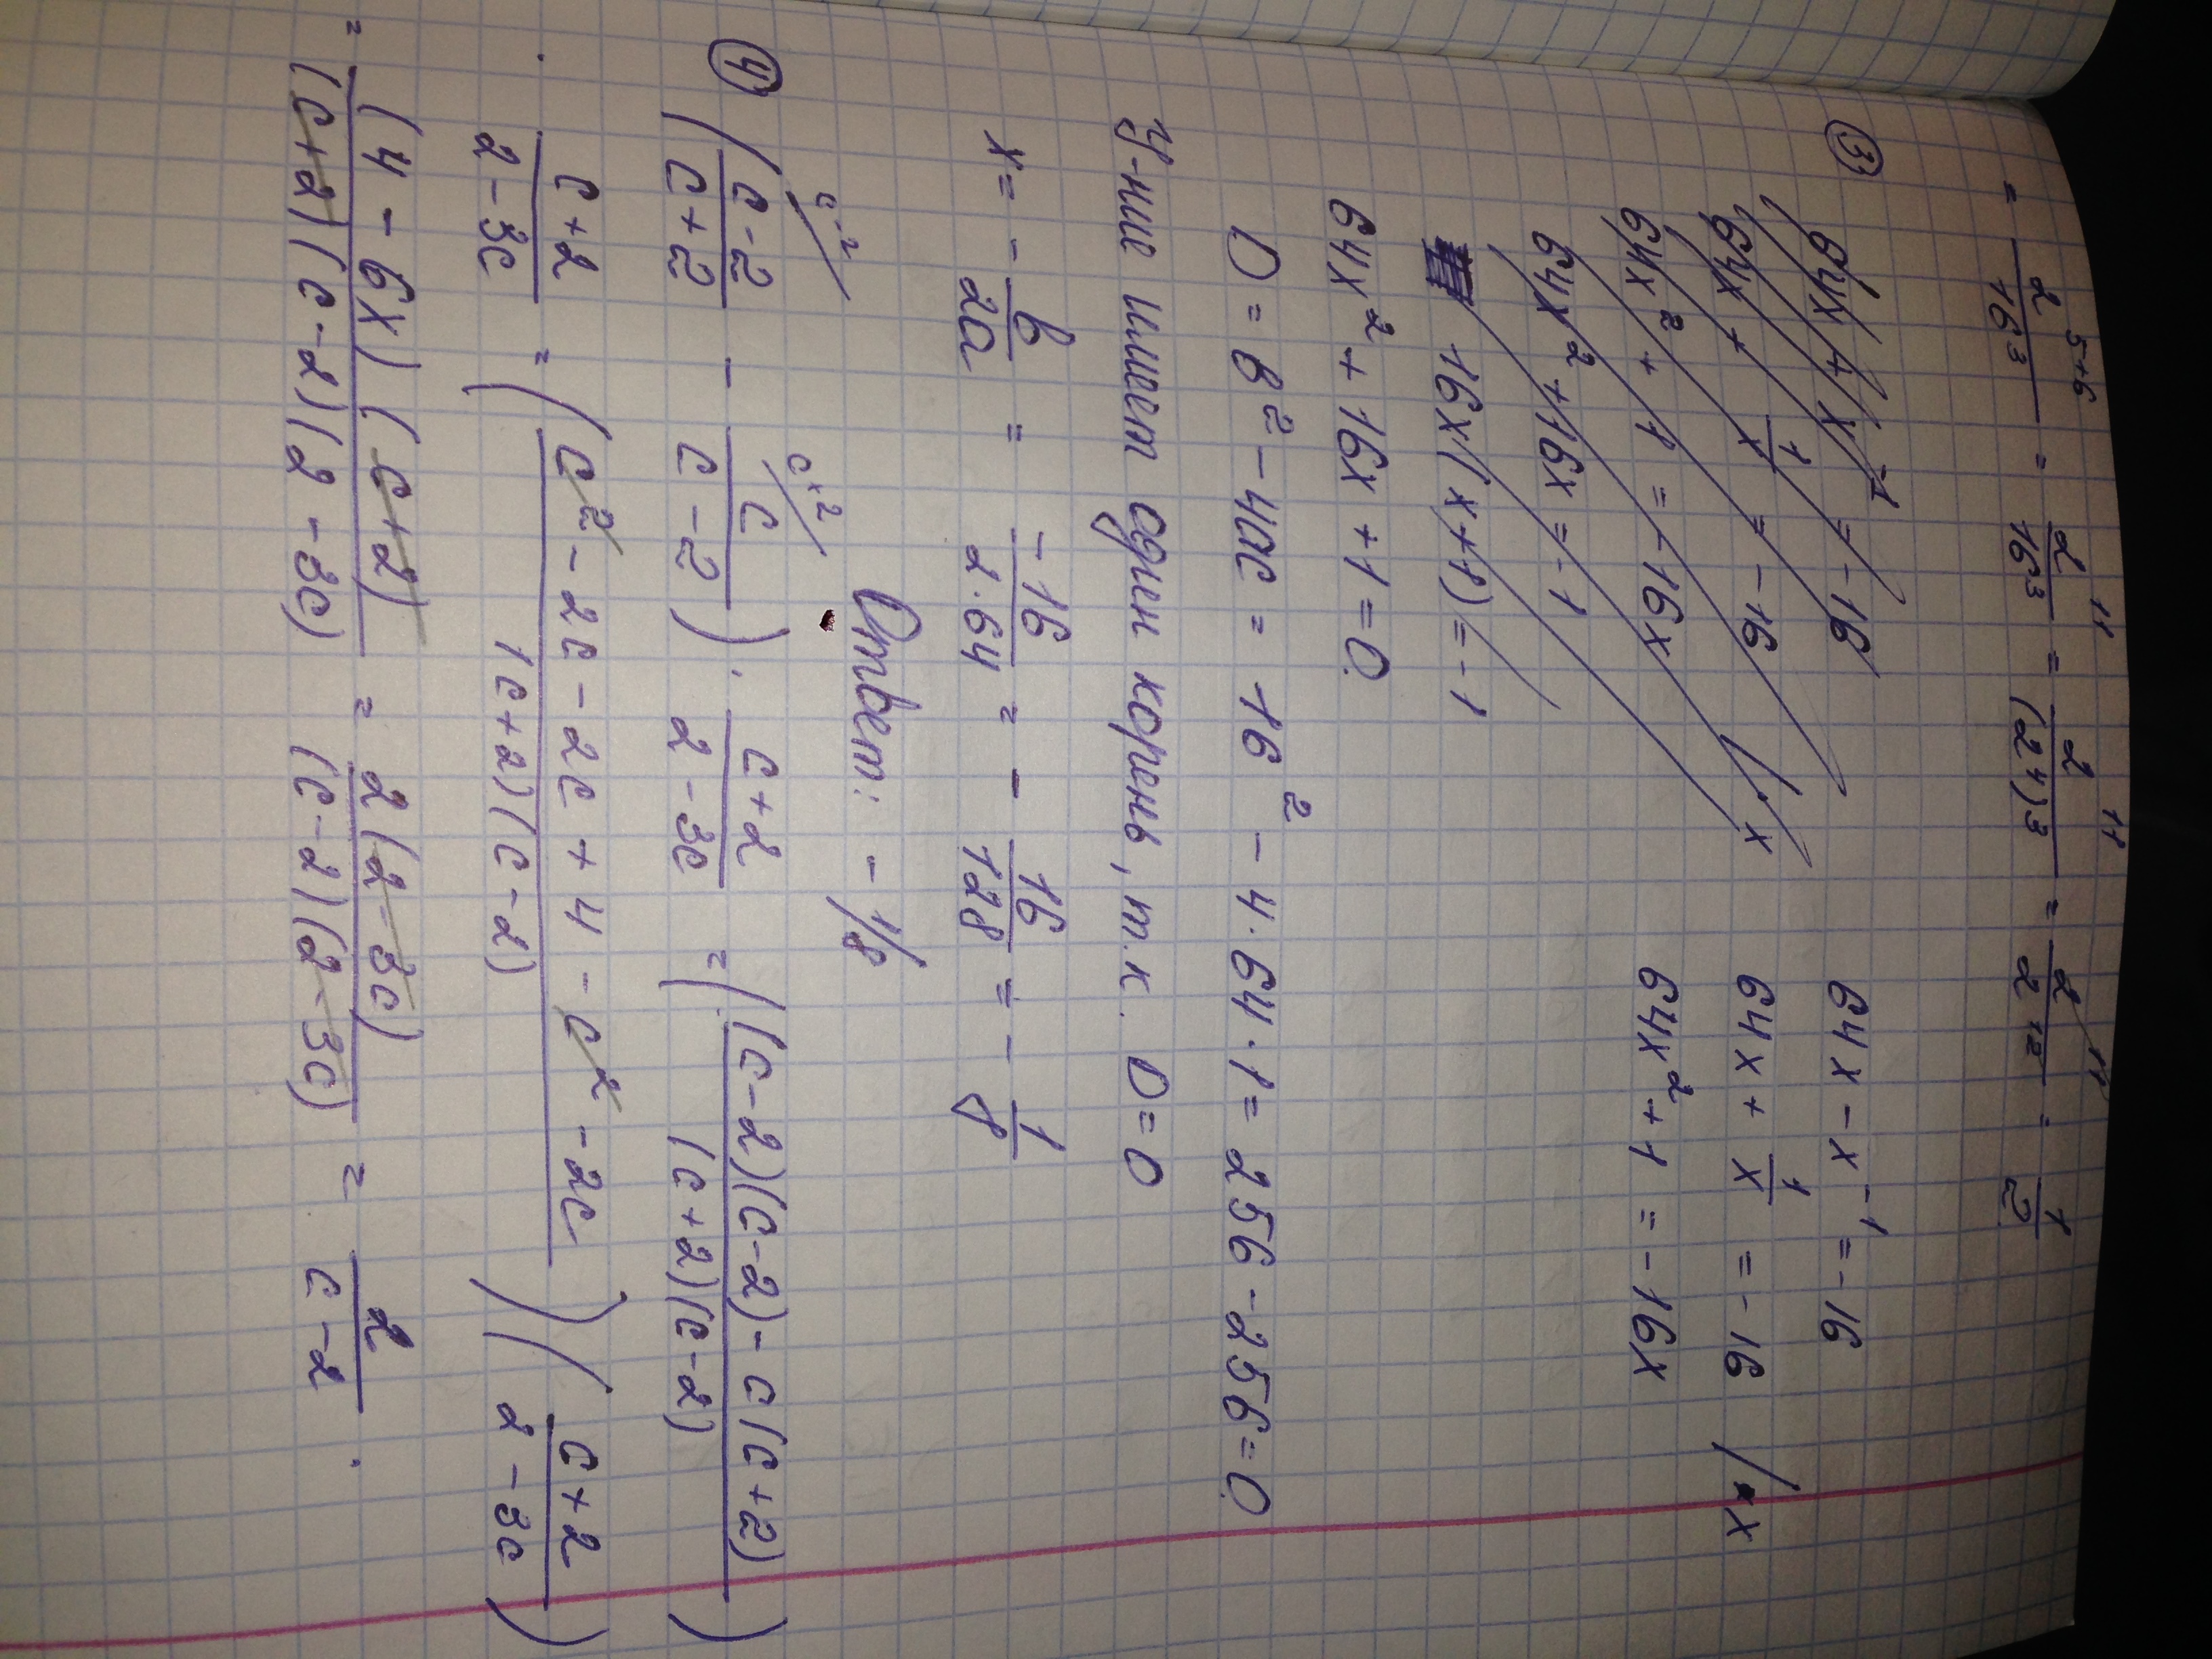 = 2^(5+6)/16³ = 2^11/16³ = 2^11/(2⁴)³ = 2^11/2^12 = 1/2
③ 64x + x⁻¹ = -16
64x + 1/x = -16 | · x
64x² + 1 = -16x
64x² + 16x = -1
16x(x+1) = -1
64x - x⁻¹ = -16
64x + 1/x = -16 | · x
64x² + 1 = -16x
64x² + 16x + 1 = 0
D = в² - 4ac = 16² - 4·64·1 = 256 - 256 = 0
У-ние имеет один корень, т.к. D = 0
x = - в/2a = -16/2·64 = - 16/128 = - 1/8
Ответ: - 1/8
④ ((c-2)/(c+2) \c-2 - c/(c-2) \c+2) · (c+2)/(2-3c) = (((c-2)(c-2) - c(c+2))/((c+2)(c-2))) ·
· (c+2)/(2-3c) = ((c² - 2c - 2c + 4 - c² - 2c)/((c+2)(c-2))) ((c+2)/(2-3c))
= ((4 - 6x)(c+2))/((c+2)(c-2)(2-3c)) = (2(2-3c))/((c-2)(2-3c)) = 2/(c-2) .